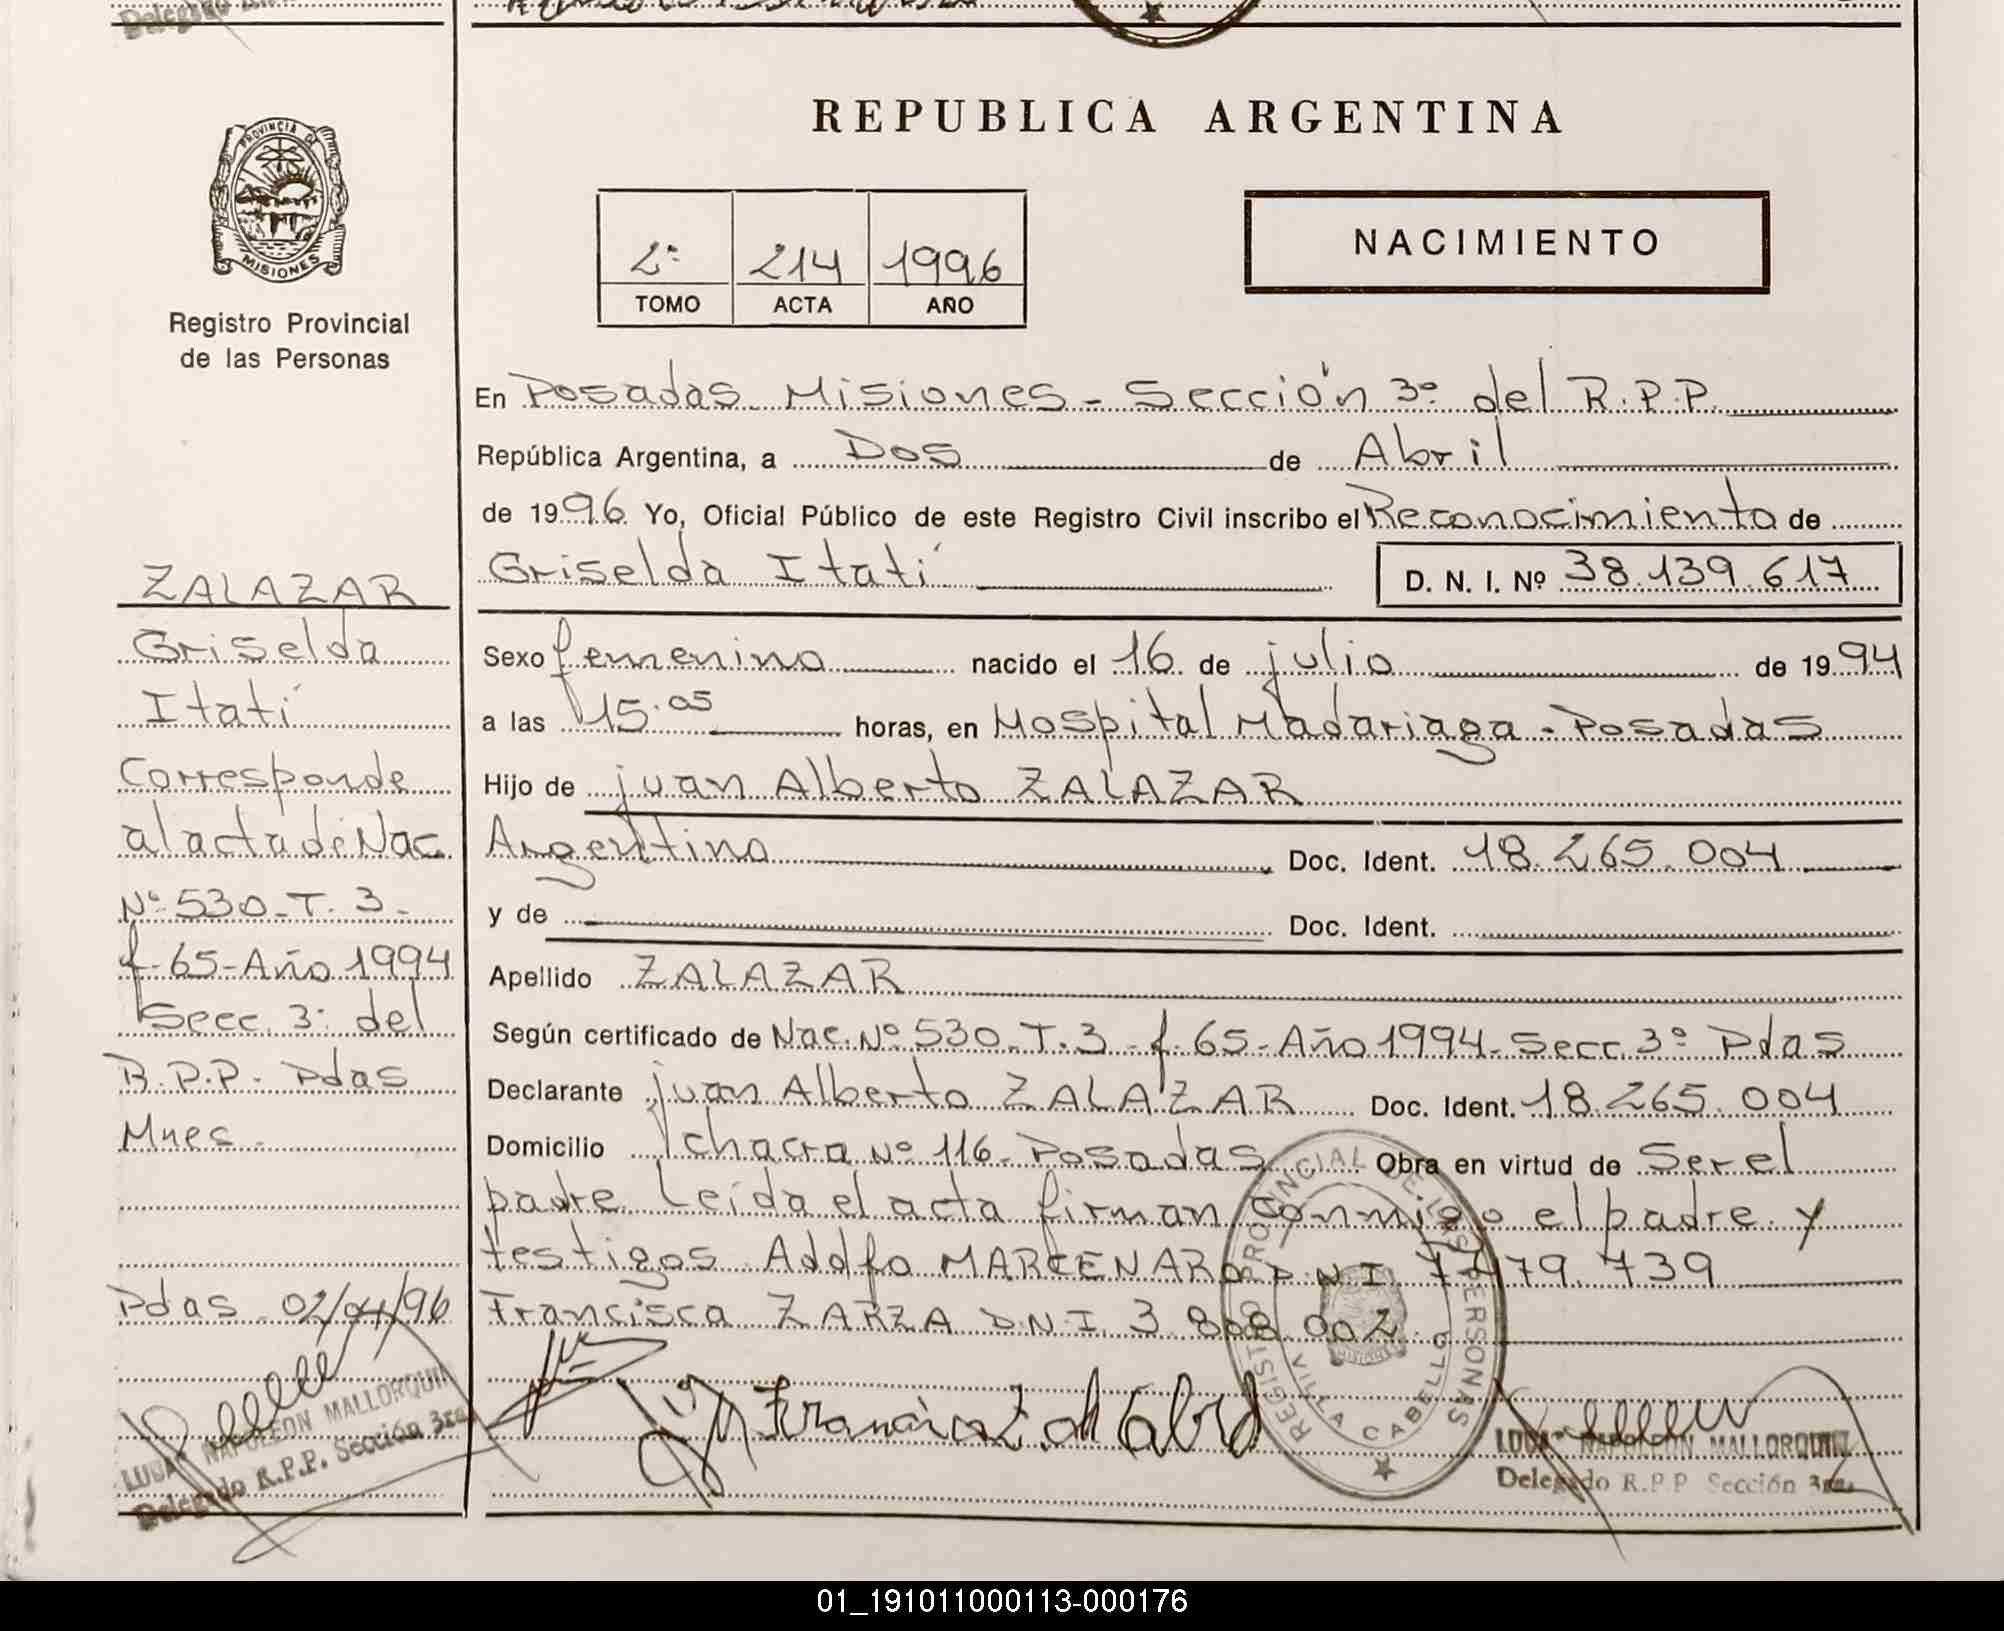 REPUBLICA ARGENTINA
PROVINCIA DE
MISIONES
Registro Provincial
de las Personas
2º 214 1996
TOMO ACTA AÑO
NACIMIENTO
En Posadas Misiones - Sección 3º del R.P.P.
República Argentina, a Dos de Abril
de 1996 Yo, Oficial Público de este Registro Civil inscribo el Reconocimiento de
Griselda Itatí D. N. I. Nº 38.139.617
Sexo femenino nacido el 16 de julio de 1994
a las 15.05 horas, en Hospital Madariaga - Posadas
Hijo de juan Alberto ZALAZAR
Argentino Doc. Ident. 18.265.004
y de Doc. Ident.
Apellido ZALAZAR
Según certificado de Nac. Nº 530 - T. 3 - f. 65 - Año 1994 - Secc 3º Pdas
Declarante juan Alberto ZALAZAR Doc. Ident. 18.265.004
Domicilio chacra Nº 116 - Posadas Obra en virtud de Ser el
padre Leída el acta firman conmigo el padre y
testigos Adolfo MARCENARO D.N.I. 7.479.739
Francisca ZARZA D.N.I. 3.808.002
ZALAZAR
Griselda
Itatí
Corresponde
al acta de Nac
Nº 530 - T. 3 -
f - 65 - Año 1994
Secc. 3º del
R.P.P. Pdas
Mnes.
Pdas 02/04/96
NAPOLEON MALLORQUIN
Delegado R.P.P. Sección 3ra
REGISTRO PROVINCIAL DE LAS PERSONAS
VILLA CABELLO
NAPOLEON MALLORQUIN
Delegado R.P.P Sección 3ra
01_191011000113-000176